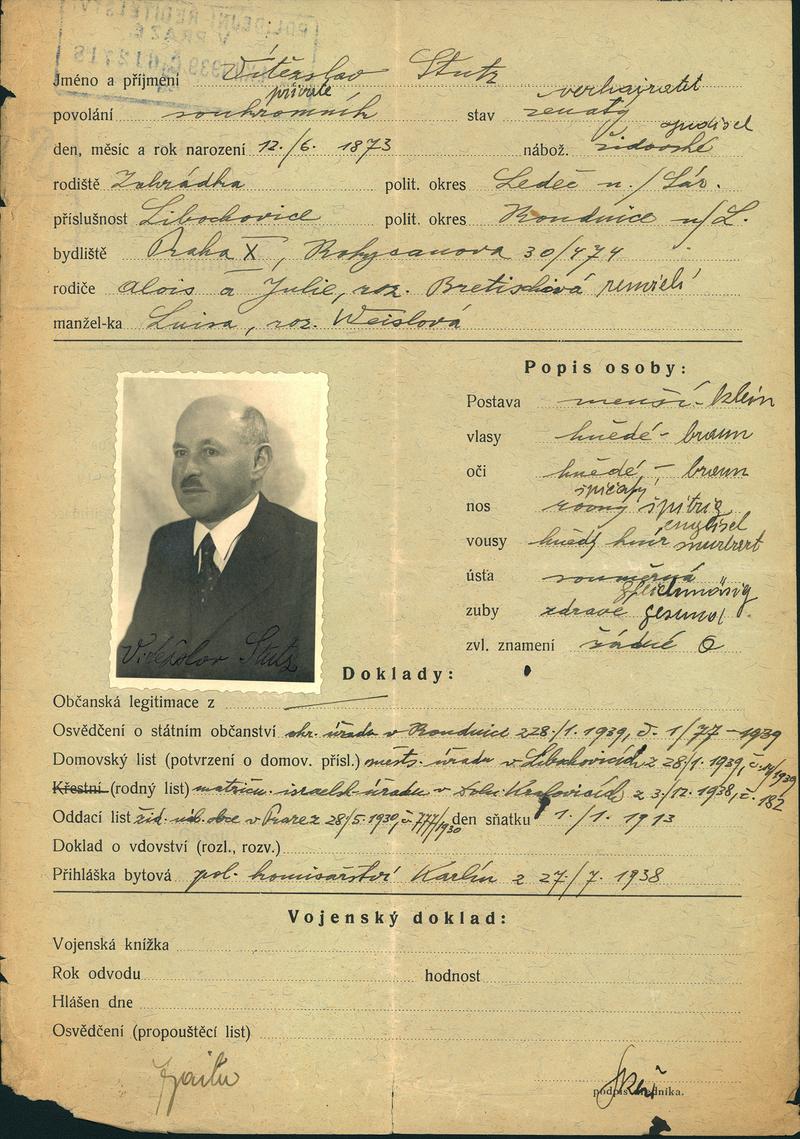 POLICEJNÍ ŘEDITELSTVÍ
V PRAZE
1939
Jméno a příjmení Vítězslav Stutz
private verheiratet
povolání soukromník stav ženatý
den, měsíc a rok narození 12./6. 1873 nábož. židovské
rodiště Zahrádka polit. okres Ledeč n./Sáz.
příslušnost Libochovice polit. okres Roudnice n/L.
bydliště Praha X, Rokycanova 30/474
rodiče Alois a Julie, roz.
manžel-ka Luisa, roz. Weislová
Popis osoby:
Postava menší - klein
vlasy hnědé - braun
oči hnědé, - braun
špičatý
nos rovný spitzig
vousy hnědý knír
ústa souměrná
gleichmäsig
zuby zdravé gesund
zvl. znamení žádné 0
Vítězslav Stutz
Doklady:
Občanská legitimace z
Osvědčení o státním občanství okr. úřadu v Roudnice z 28/1. 1939, č. 1/77 - 1939
Domovský list (potvrzení o domov. přísl.) měst. úřadu v Libochovicích z 28/1. 1939,
Křestní (rodný list) matriční israelsk. úřadu v Doln. Kralovicích z 3./12. 1938, č. 182
Oddací list žid. náb. obce v Praze z 28/5. 1930, č. 777/1930 den sňatku 1./1. 1913
Doklad o vdovství (rozl., rozv.)
Přihláška bytová pol. komisařství Karlín z 27./7. 1938
Vojenský doklad:
Vojenská knížka
Rok odvodu hodnost
Hlášen dne
Osvědčení (propouštěcí list)
podpis úředníka.